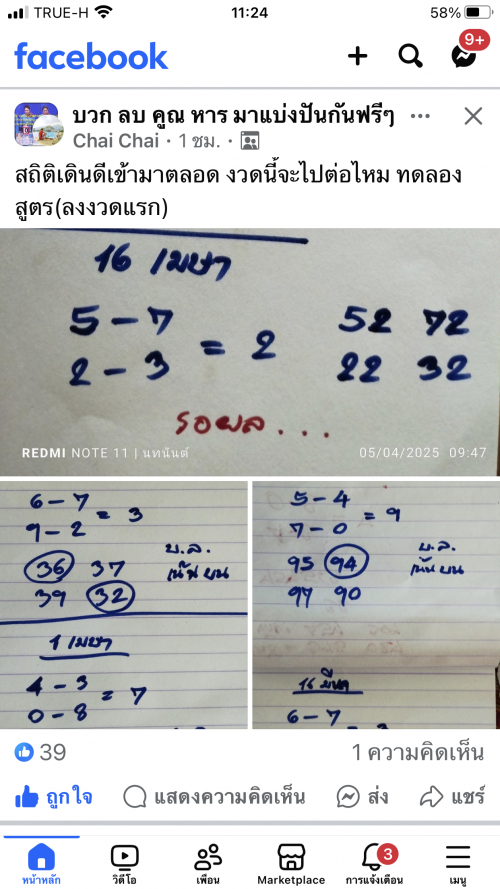 TRUE-H 11:24 58%
facebook 9+
บวก ลบ คูณ หาร มาแบ่งปันกันฟรีๆ
Chai Chai · 1 ชม. ·
สถิติเดินดีเข้ามาตลอด งวดนี้จะไปต่อไหม ทดลอง
สูตร(ลงงวดแรก)
16 เมษา
5 - 7
2 - 3
= 2
52 72
22 32
รอผล...
REDMI NOTE 11 | นทนันต์
05/04/2025 09:47
6 - 7
9 - 2
= 3
36 37
39 32
บ.ล.
เน้นบน
1 เมษา
4 - 3
0 - 8
= 7
5 - 4
7 - 0
= 9
95 94
97 90
บ.ล.
เน้นบน
16 มีนา
6 - 7
39
1 ความคิดเห็น
ถูกใจ แสดงความคิดเห็น ส่ง แชร์
3
หน้าหลัก วิดีโอ เพื่อน Marketplace การแจ้งเตือน เมนู